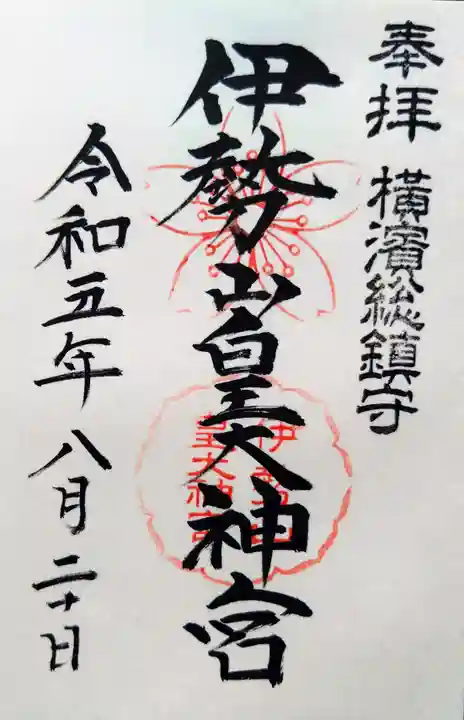 奉拝 橫濱総鎮守
伊勢山皇大神宮
伊勢山
皇大神宮
令和五年八月二十日